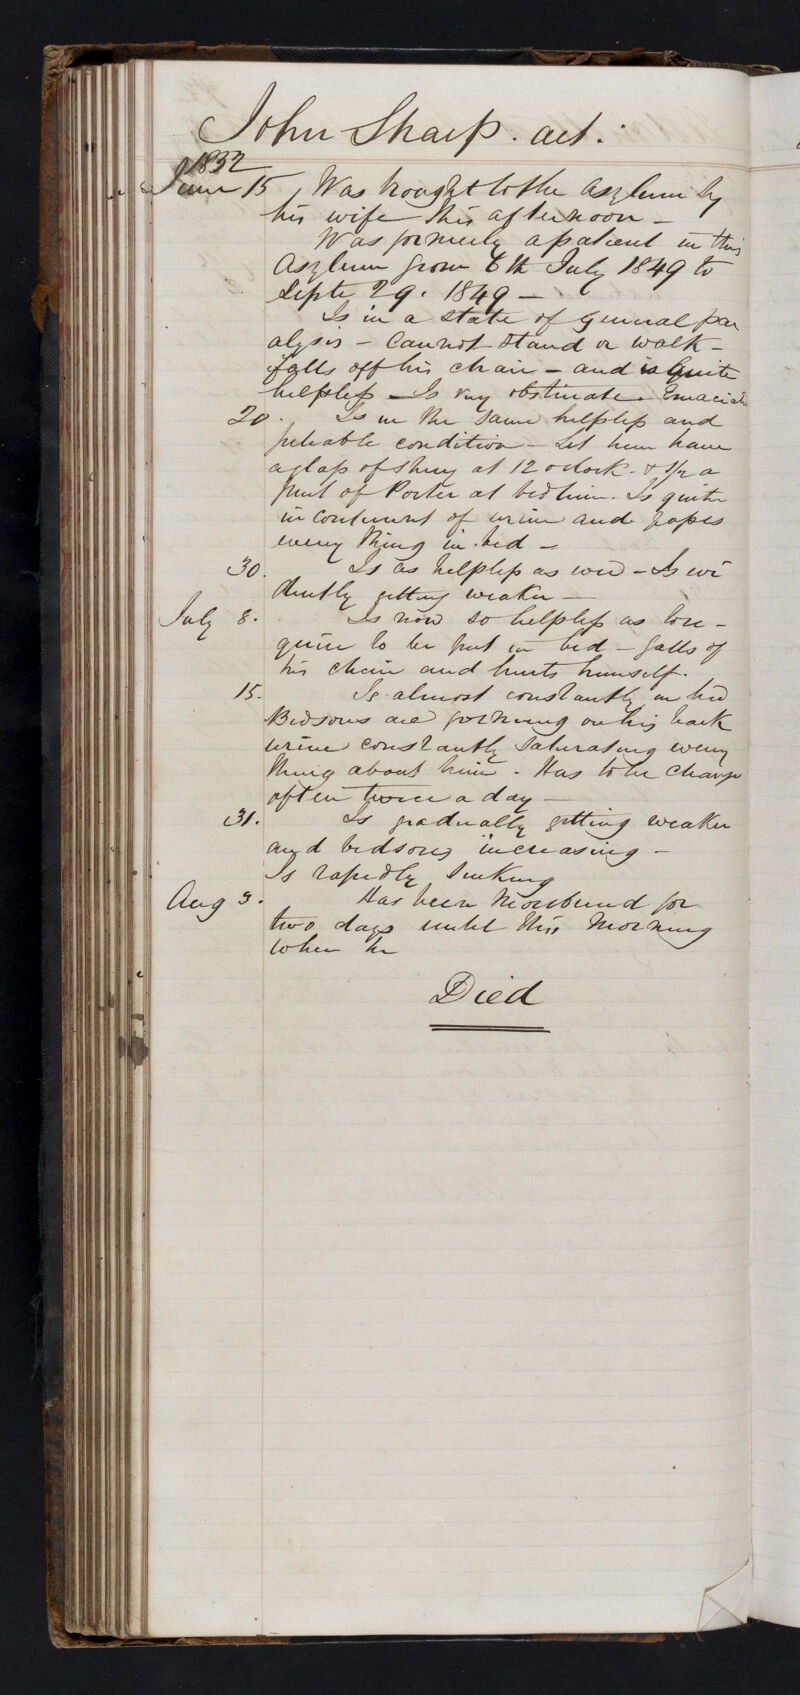 John Sharp. aet:
1852
June 15 Was brought to the Asylum by
his wife this afternoon –
Was formerly a patient in this
Asylum from 6th July 1849 to
Septr 29. 1849 –
Is in a state of General par
alysis – Cannot stand or walk –
falls off his chair – and is quite
helpless – Is very obstinate. Emaciated
20. Is in the same helpless and
pitiable condition – Let him have
a glass of Sherry at 12 oclock. & 1/2 a
pint of Porter at bedtime. Is quite
incontinent of urine and
every thing in bed –
30. Is as helpless as ever – Is evi
dently getting weaker –
July 8. Is now so helpless as to re-
quire to be put in bed – falls of
his chair and hurts himself.
15. Is almost constantly in bed
Bedsores are forming on his back
urine constantly saturating every
thing about him. Has to be change
often twice a day –
31. Is gradually getting weaker
and bedsores increasing –
Is rapidly sinking
Aug 3. Has been Moribund for
two days until this Morning
when he
Died